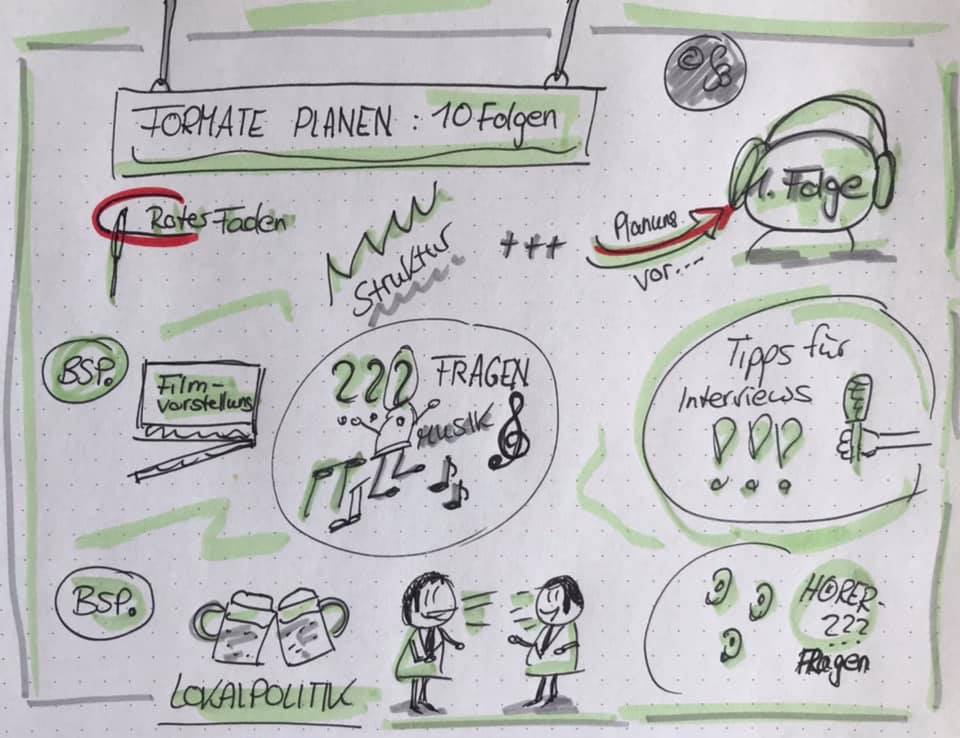 FORMATE PLANEN : 10 Folgen
Roter Faden
Struktur
+++
Planung
vor....
1. Folge
BSP.
Film-
vorstellung
??? FRAGEN
MUSIK
Tipps für
Interviews
!!!
BSP.
LOKALPOLITIK
HÖRER-
???
Fragen